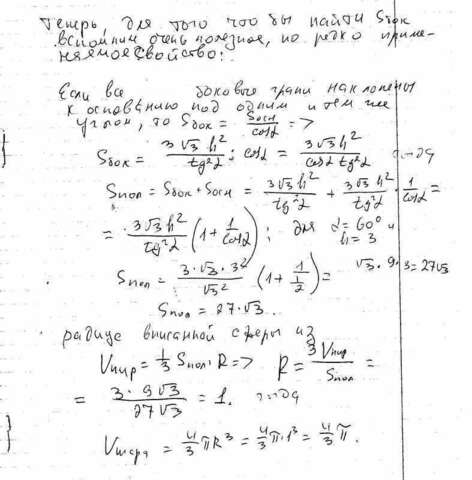 Теперь, для того что бы найти Sбок
вспомним очень полезное, но редко приме-
няемое свойство:
Если все боковые грани наклонены
к основанию под одним и тем же
углом, то Sбок = Sосн/cosα =>
Sбок = 3√3 h²/tg²α : cosα = 3√3 h²/(cosα tg²α)
Sпол = Sбок + Sосн = 3√3 h²/tg²α + 3√3 h²/tg²α · 1/cosα =
= 3√3 h²/tg²α (1 + 1/cosα); для α = 60° и
h = 3
Sпол = 3·√3·3²/√3² (1 + 1/(1/2)) = √3·9·3 = 27√3
Sпол = 27·√3.
радиус вписанной сферы из
Vпир = 1/3 Sпол·R => R = 3Vпир/Sпол =
= 3·9√3/27√3 = 1.
Vшара = 4/3 πR³ = 4/3 π·1³ = 4/3 π.